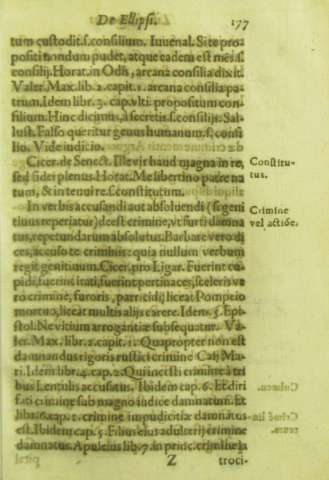 De Ellipsi. 177
tum custodit. s. consilium. Iuvenal. Si te pro-
positi nondum pudet, atque eadem est mẽs. s.
consilij. Horat. in Odis, arcana consilia dixit.
Valer. Max. lib. 2. capit. 1. arcana consilia pa-
trum. Idem libr. 3. cap. vlti. propositum con-
silium. Hinc dicimus, à secretis. s. consilijs. Sal-
lust. Falso queritur genus humanum. s. consi
lio. Vide iudicio.
Cicer. de Senect. Ille vir haud magna in re,
sed fidei plenus. Horat. Me libertino patre na
tum, & in tenui re. s. constitutum.
Constitu-
tus.
In verbis accusandi aut absoluendi (si geni
tiuus reperiatur) deest crimine, vt furti damna
tus, repetundarum absolutus. Barbarè vero di
ces, accuso te criminis: quia nullum verbum
regit genituum. Cicer. pro Ligar. Fuerint cu-
pidi, fuerint irati, fuerint pertinaces, sceleris ve
rò crimine, furoris, parricidij liceat Pompeio
mortuo, liceat multis alijs carere. Idem 5. Epi-
stol. Ne vitium arrogantiæ subsequatur. Va-
ler. Max. libr. 2. capit. 1. Quapropter non est
damnandus rigoris rustici crimine Caij Ma-
ri. Idem libr. 4. cap. 2. Qui incesti crimine à tri
bus Lentulis accusatus. Ibidem cap. 6. Et diri
crimine sub magno iudice damnatum. Et
lib. 6. cap. 1. crimine impudicitiæ damnatus
est. Ibidem cap. 5. Filius eius adulterij crimine
damnatus. Apuleius lib. 7. in princ. crimine la
Crimine
vel actiõe.
Z troci-